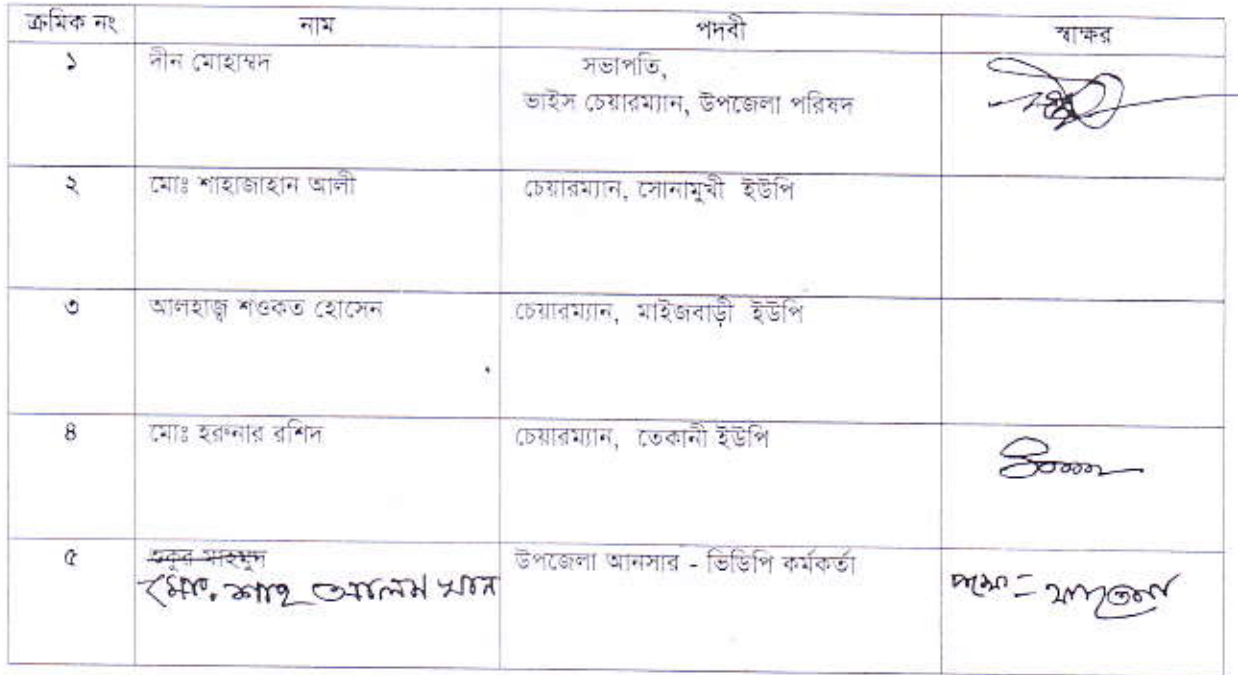 ক্রমিক নং নাম পদবী স্বাক্ষর
১ দীন মোহাম্বদ সভাপতি,
ভাইস চেয়ারম্যান, উপজেলা পরিষদ
২ মোঃ শাহাজাহান আলী চেয়ারম্যান, সোনামুখী ইউপি
৩ আলহাজ্ব শওকত হোসেন চেয়ারম্যান, মাইজবাড়ী ইউপি
৪ মোঃ হরুনার রশিদ চেয়ারম্যান, তেকানী ইউপি
৫ উপজেলা আনসার - ভিডিপি কর্মকর্তা
মো. শাহ আলম খান